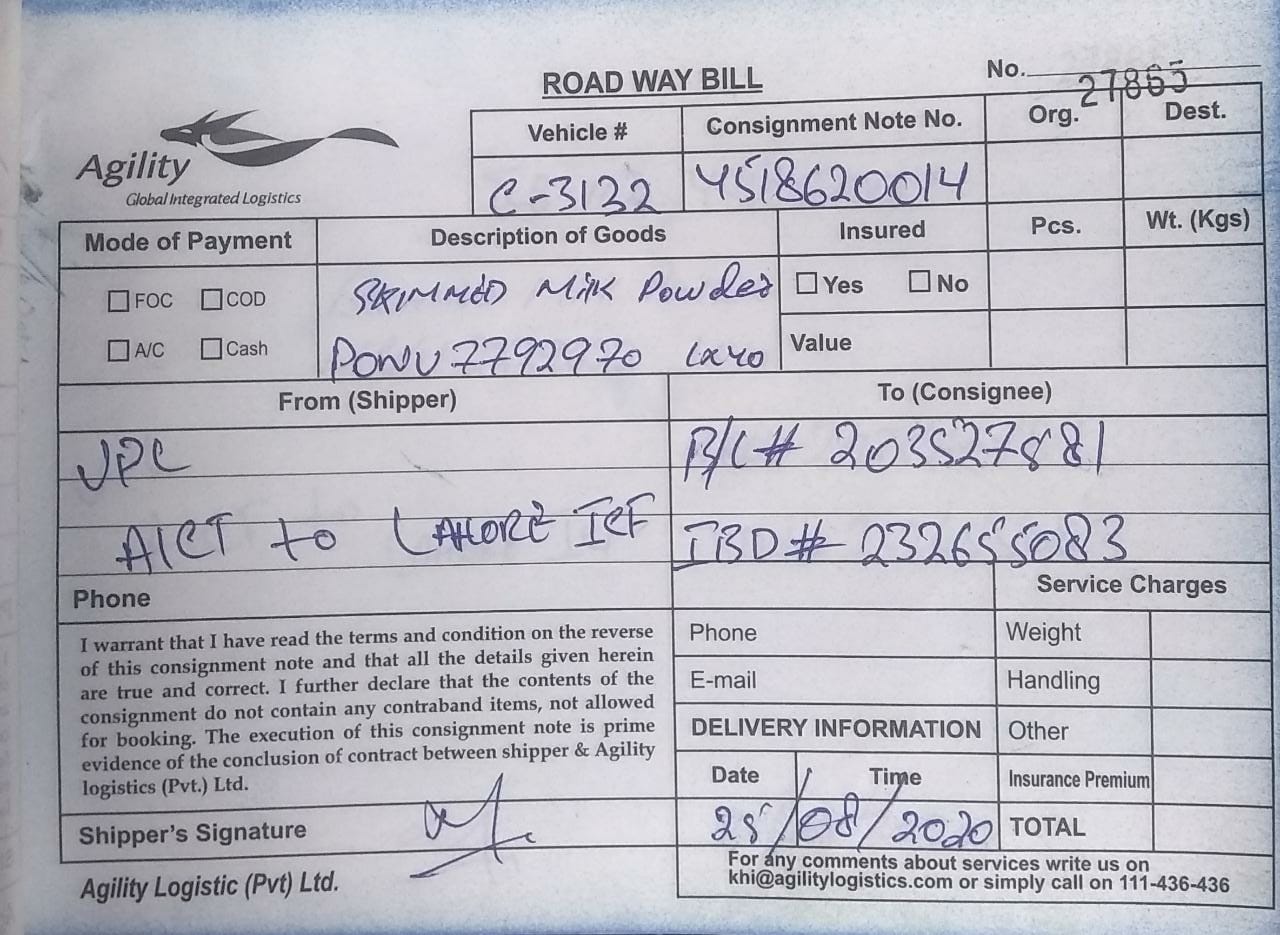 ROAD WAY BILL
No. 27865
Agility
Global Integrated Logistics
Vehicle # Consignment Note No. Org. Dest.
C-3132 4518620014
Mode of Payment Description of Goods Insured Pcs. Wt. (Kgs)
FOC COD SKIMMED Milk Powder Yes No
A/C Cash PONU7792970 1x40 Value
From (Shipper) To (Consignee)
JPL B/L# 203527881
AICT to LAHORE ICF IBD# 232655083
Phone Service Charges
I warrant that I have read the terms and condition on the reverse
of this consignment note and that all the details given herein
are true and correct. I further declare that the contents of the
consignment do not contain any contraband items, not allowed
for booking. The execution of this consignment note is prime
evidence of the conclusion of contract between shipper & Agility
logistics (Pvt.) Ltd.
Phone Weight
E-mail Handling
DELIVERY INFORMATION Other
Date Time Insurance Premium
Shipper's Signature 25/08/2020 TOTAL
Agility Logistic (Pvt) Ltd.
For any comments about services write us on
khi@agilitylogistics.com or simply call on 111-436-436